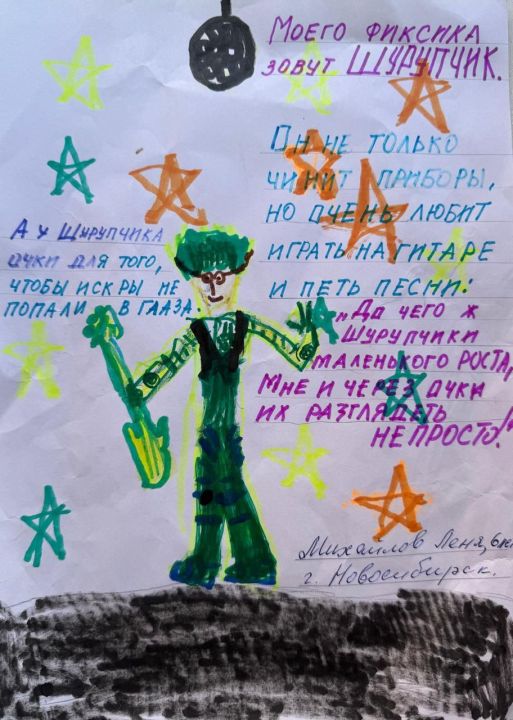 Моего фиксика
зовут Шурупчик.
Он не только
чинит приборы,
но очень любит
играть на гитаре
и петь песни:
„До чего ж
Шурупчики
маленького роста,
Мне и через очки
их разглядеть
не просто!"
А у Шурупчика
очки для того,
чтобы искры не
попали в глаза
Михайлов Леня, 6
г. Новосибирск.